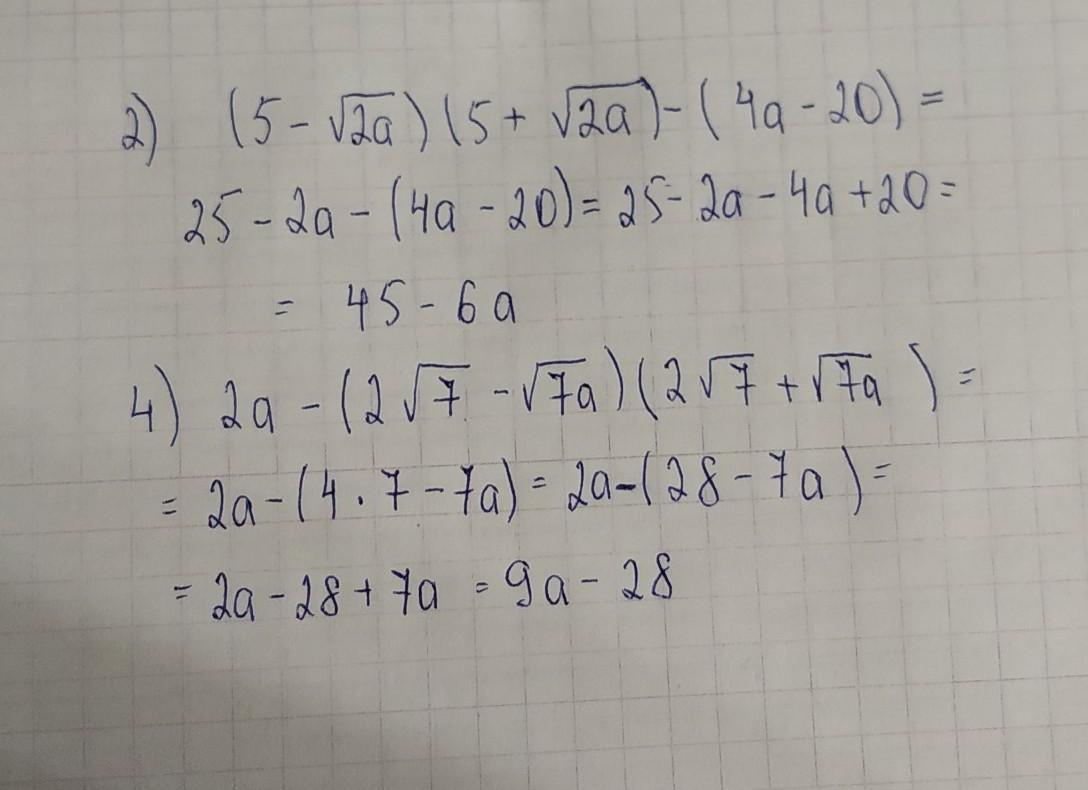 2) (5 - √2a)(5 + √2a) - (4a - 20) =
25 - 2a - (4a - 20) = 25 - 2a - 4a + 20 =
= 45 - 6a
4) 2a - (2√7 - √7a)(2√7 + √7a) =
= 2a - (4 · 7 - 7a) = 2a - (28 - 7a) =
= 2a - 28 + 7a = 9a - 28